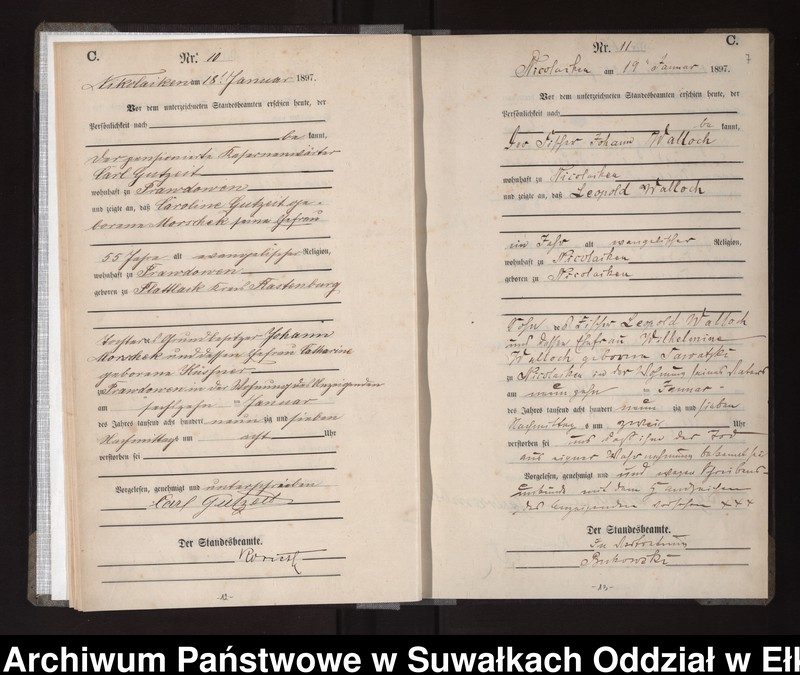 C.
Nr. 10
Nikolaiken am 18t Januar 1897.
Vor dem unterzeichneten Standesbeamten erschien heute, der
Persönlichkeit nach
be kannt,
der pensionierte Kasernenwärter
Carl Gutzeit
wohnhaft zu Prawdowen
und zeigte an, daß Caroline Gutzeit ge-
borene Morschek seine Ehefrau
55 Jahre alt evangelischer Religion,
wohnhaft zu Prawdowen
geboren zu Plattlack Kreis Rastenburg
Tochter des Grundbesitzer Johann
Morschek und dessen Ehefrau Catharine
geborenen
zu Prawdowen in der Wohnung des Anzeigenden
am sechzehn ten Januar
des Jahres tausend acht hundert neun zig und sieben
Nachmittags um acht Uhr
verstorben sei
Vorgelesen, genehmigt und unterschrieben
Carl Gutzeit
Der Standesbeamte.
-12-
C.
7
Nr. 11
Nicolaiken am 19t Januar 1897.
Vor dem unterzeichneten Standesbeamten erschien heute, der
Persönlichkeit nach
be kannt,
der Fischer Johann Walloch
wohnhaft zu Nicolaiken
und zeigte an, daß Leopold Walloch
ein Jahr alt evangelischer Religion,
wohnhaft zu Nicolaiken
geboren zu Nicolaiken
Sohn des Fischer Leopold Walloch
und dessen Ehefrau Wilhelmine
Walloch geborene
zu Nicolaiken in der Wohnung seines Vaters
am neunzehn ten Januar
des Jahres tausend acht hundert neun zig und sieben
Nachmittags um zwei Uhr
verstorben sei und daß ihm der Tod
aus eigner Wahrnehmung bekannt sei
Vorgelesen, genehmigt und wegen Schreibens-
unkunde mit dem Handzeichen
des Anzeigenden versehen xxx
Der Standesbeamte.
In Vertretung
-13-
Archiwum Państwowe w Suwałkach Oddział w Ełk